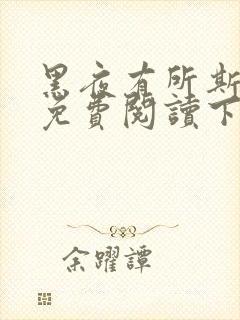 黑夜有所斯
免費閱讀下
余躍譚